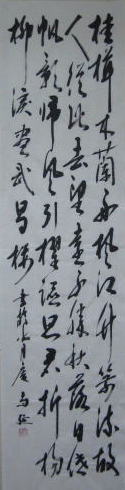 桂楫木蘭舟楓江竹箭流故
人從此去望遠不勝秋落日低
帆影歸風引櫂謳思君折楊
柳淚盡武昌樓
書於